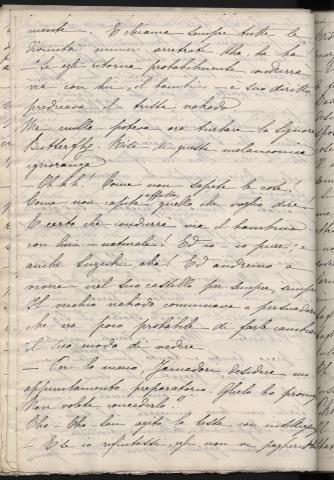 mente. E chiama sempre tutte le
numeri arretrati. Ma ha ha!
egli ritorna probabilmente condurrà
via con lui, il bambino e suo diritto
predicava il triste nakodo
Ma nulla poteva ora turbare la Signora
Butterfly. Rise a queste melanconica
ignoranza
Ohhh! Come non sapete le cose!
Come non capite affatto quello che voglio dire
E certo che condurrà via il bambino
con lui – naturale! Ed io – io pure, e
anche Suzuki aha! Ed andremo a
vivere nel suo castello per sempre, sempre
Il vecchio nakodo cominciava a persuadersi
che era poco probabile di farle cambiare
il suo modo di vedere
– Per lo meno, Yamadori desidere un
appuntamento preparatorio. Glielo ho promesso
Non volete concederlo?
Cho-Cho-San agitò la testa con
– E se io rifiutassi, egli non vi pagherebbe